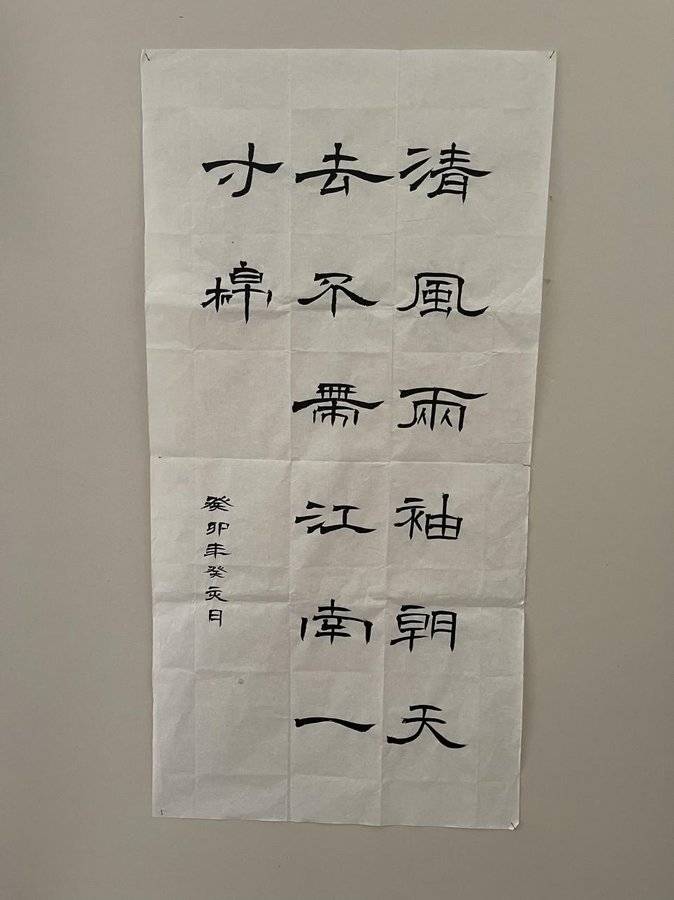 清風兩袖朝天
去不帶江南一
寸棉
癸卯年癸亥月